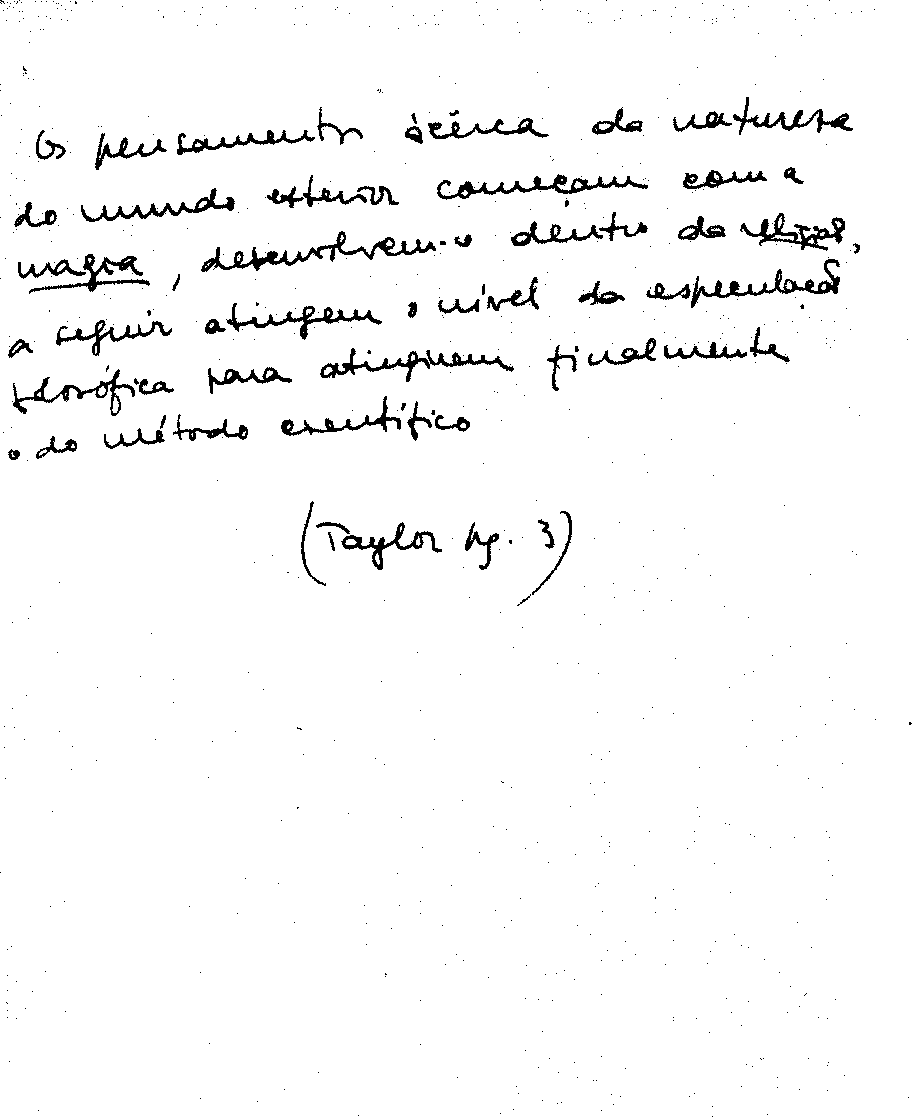 Os pensamentos àcêrca da natureza
do mundo exterior começam com a
magia, desenvolvem-se dentro da religião,
a seguir atingem o nível da especulação
filosófica para atingirem finalmente
o do método científico
(Taylor pg. 3)